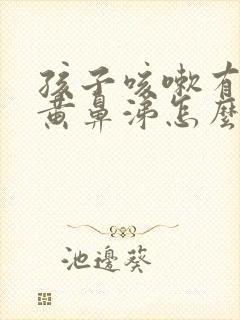 孩子咳嗽有
黄鼻涕怎麼
池邊葵